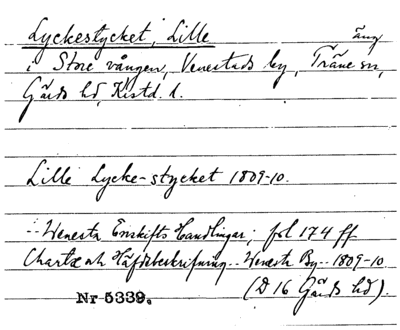 Lyckestycket, Lille äng
i Store vången, Venestads by, Träne sn,
Gärds hd, Kistd. l.
Lille Lycke-stycket 1809-10.
Wenesta Enskifts Handlingar; fol 174 ff
Charta och Häfdebeskrifning Wenesta By 1809-10
(D 16 Gärds hd).
Nr 5339.